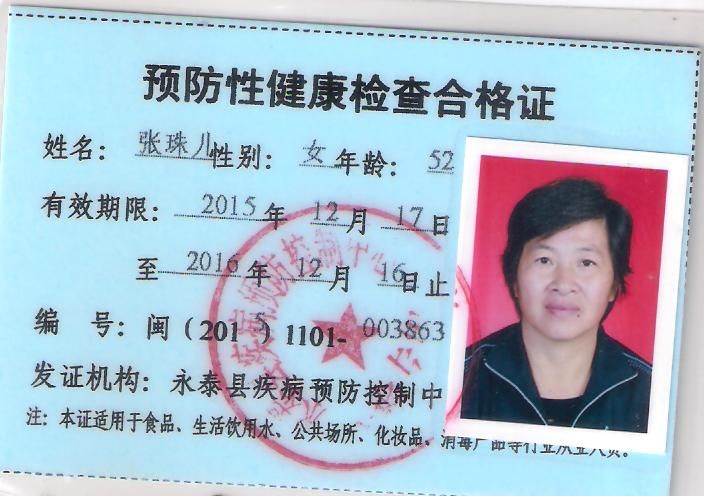 预防性健康检查合格证
姓名：张珠儿性别：女年龄：52
有效期限：2015年12月17日
至2016年12月16日止
编 号：闽（2015）1101-003863
发证机构：永泰县疾病预防控制中
注：本证适用于食品、生活饮用水、公共场所、化妆品、消毒产品等行业从业人员。
疾病预防控制中心